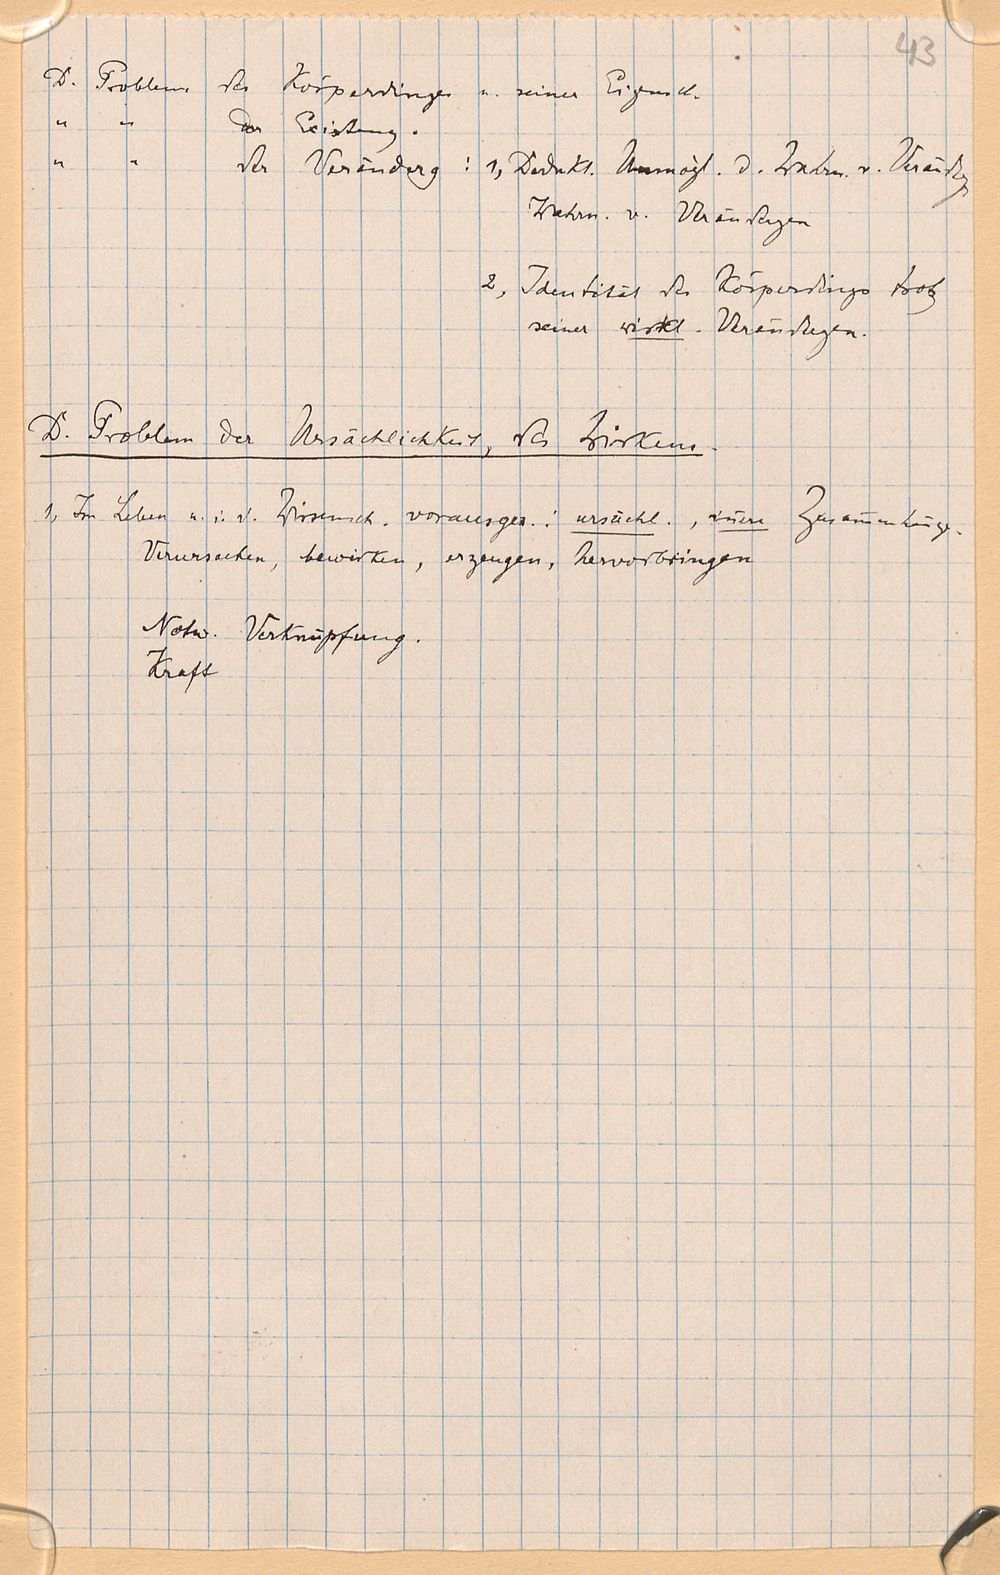 43
D. Problem des Körperdinges u. seiner Eigensch.
" " der Existenz.
" " der Veränderg : 1, Dedukt. Unmögl. d. Wahrn. v. Veränderg
Wahrn. v. Veränderungen
2, Identität des Körperdings trotz
seiner wirkl. Veränderungen.
D. Problem der Ursächlichkeit, des Wirkens.
1, Im Leben u. i. d. Wissensch. vorausges. : ursächl., innere Zusammenhänge.
Verursachen, bewirken, erzeugen, hervorbringen
Notw. Verknüpfung.
Kraft